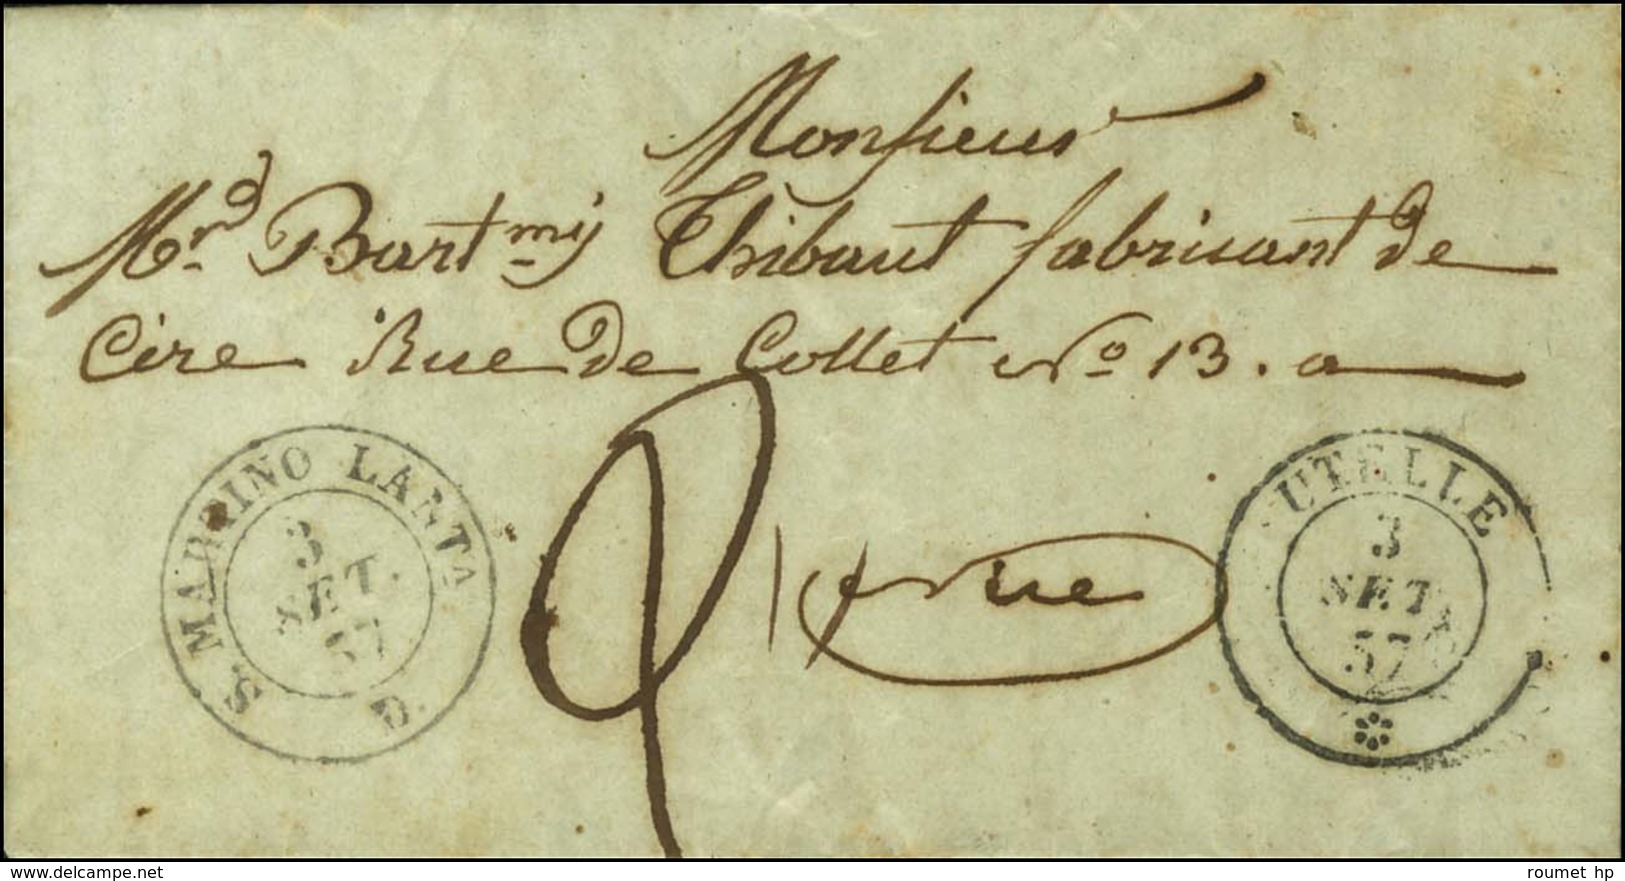 Monsieur
Mrd. Bartmy Thibaut fabricant de
Cire Rue de Collet No 13. a
Nice
S. MARTINO LANTA
3
SET.
57
D.
UTELLE
3
SET
57
delcampe.net
roumet hp